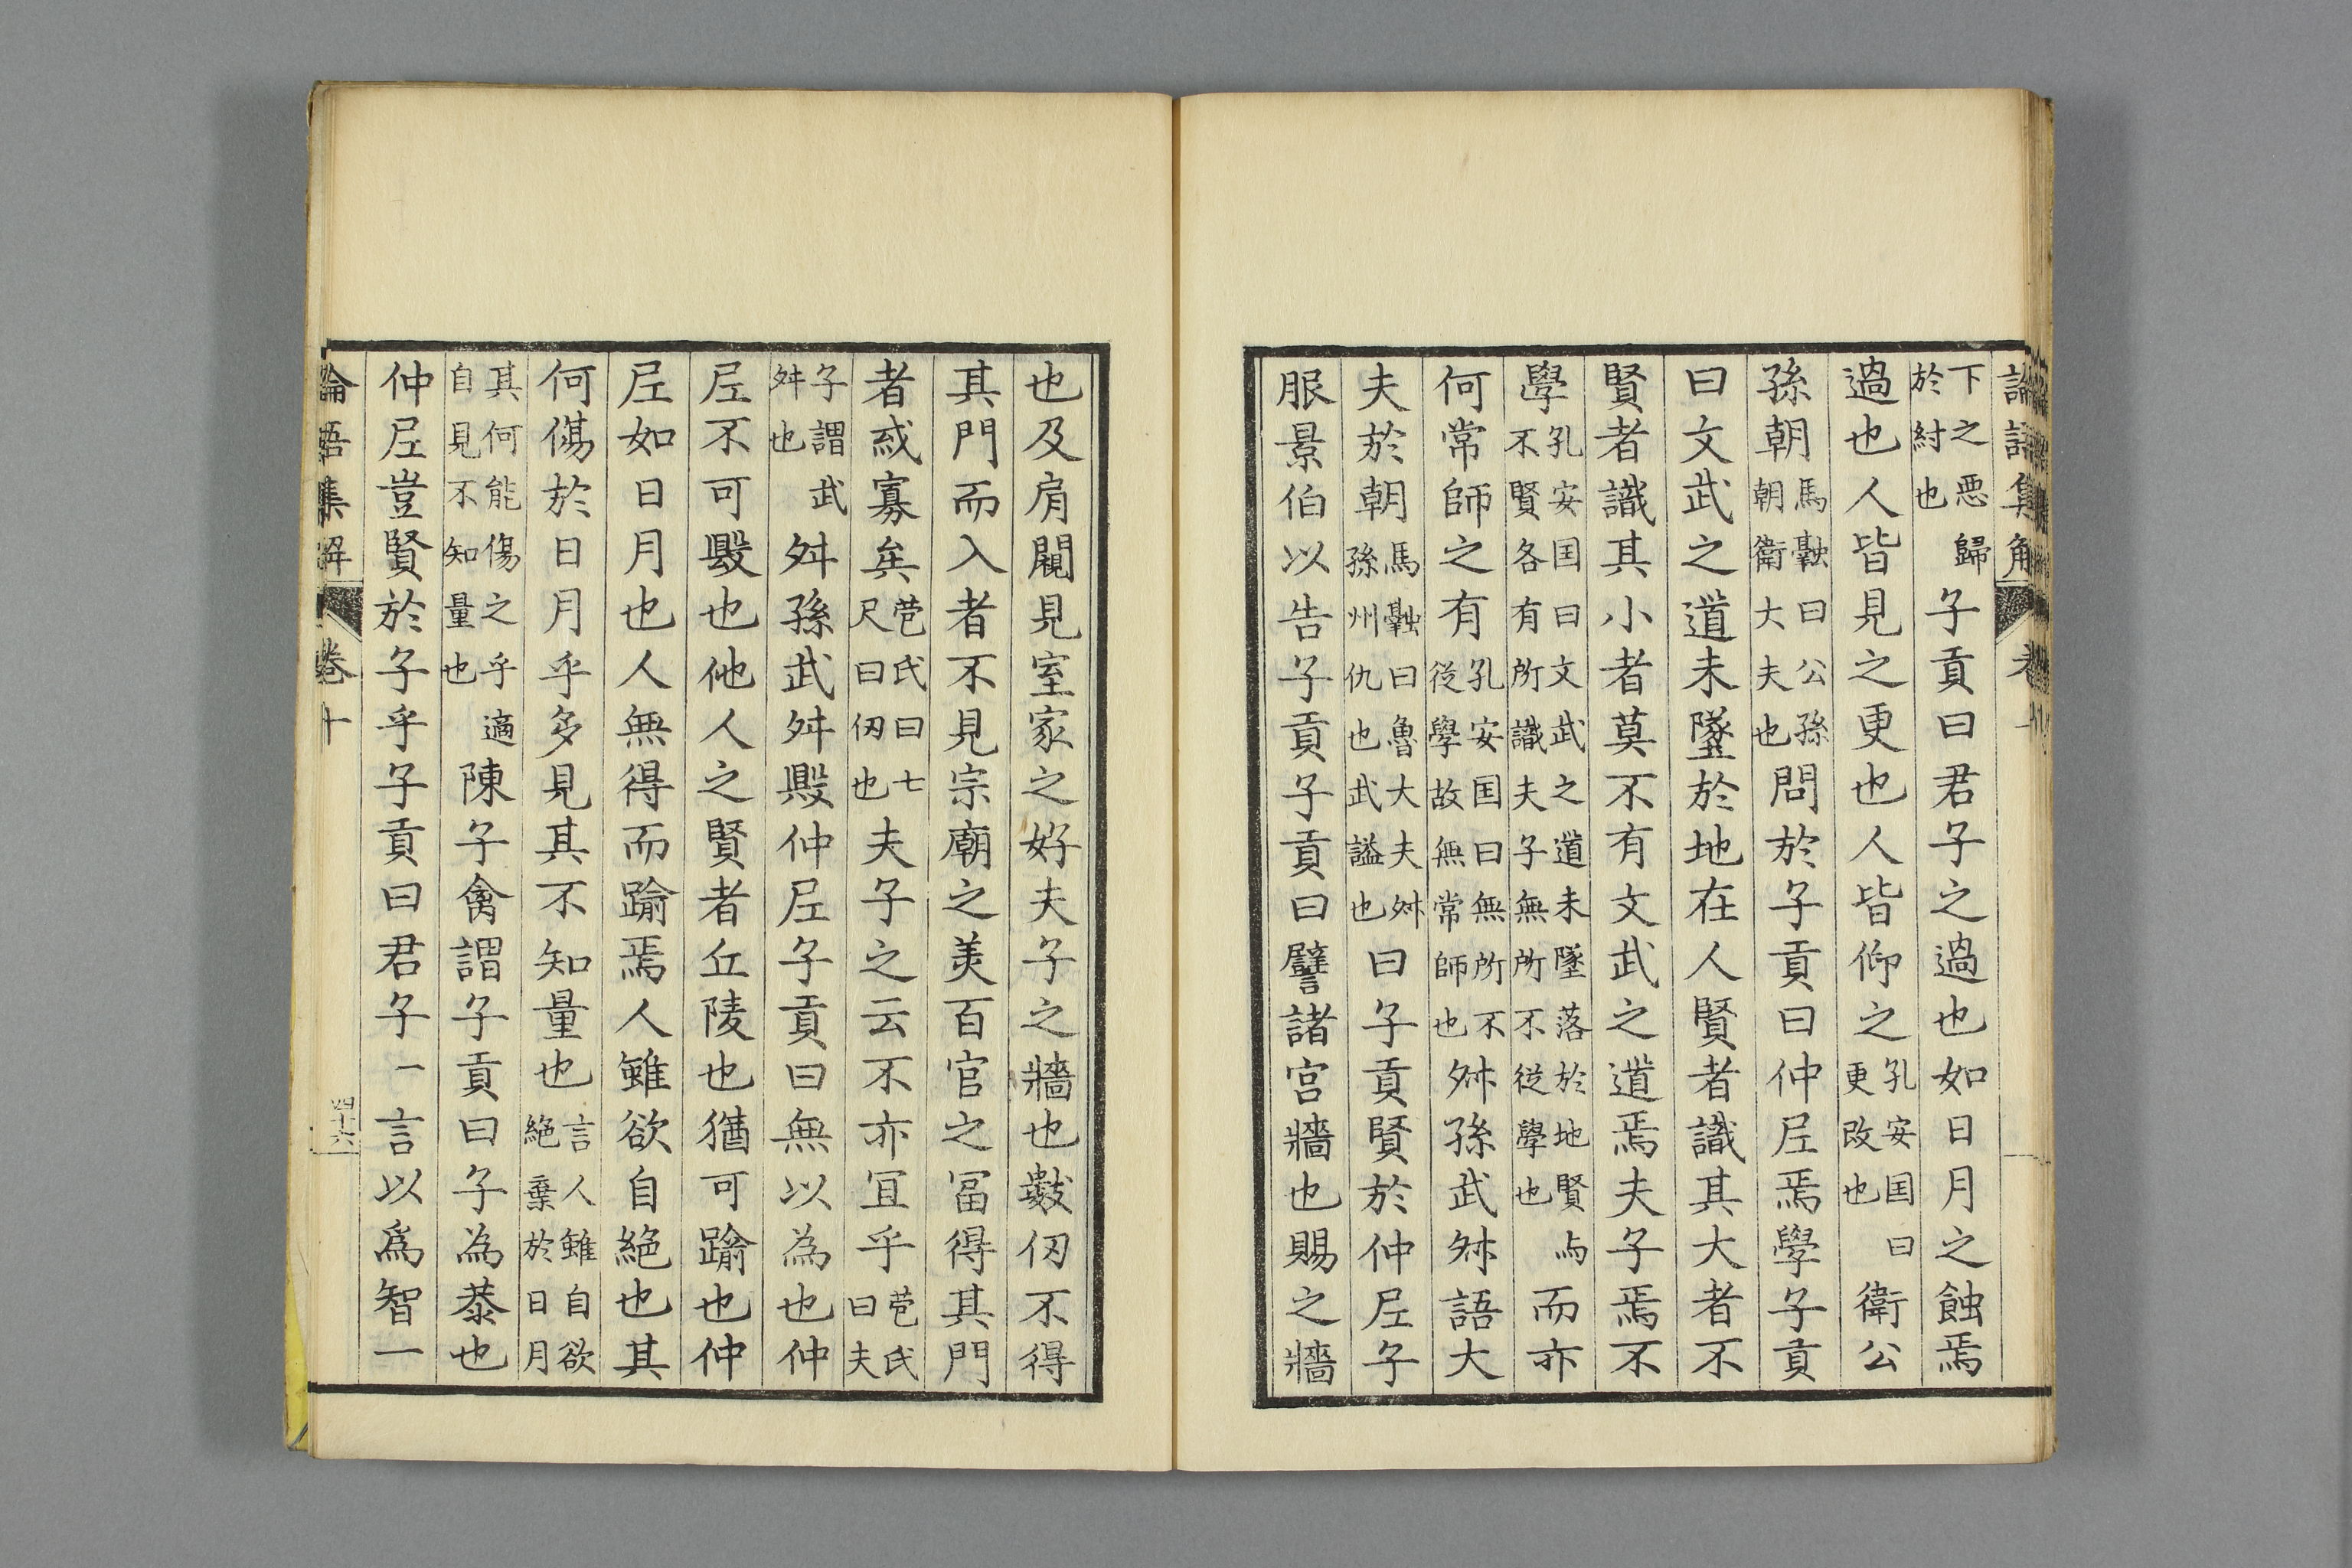 下之惡歸於紂也子貢曰君子之過也如日月之蝕焉
過也人皆見之更也人皆仰之孔安囯曰更改也衛公
孫朝馬融曰公孫朝衛大夫也問於子貢曰仲𡰥焉學子貢
曰文武之道未墜於地在人賢者識其大者不
賢者識其小者莫不有文武之道焉夫子焉不
學孔安囯曰文武之道未墜落於地賢与不賢各有所識夫子無所不從學也而亦
何常師之有孔安囯曰無所不從學故無常師也叔孫武叔語大
夫於朝馬融曰魯大夫叔孫州仇也武謚也曰子貢賢於仲𡰥子
服景伯以告子貢子貢曰譬諸宮牆也賜之牆
也及肩闚見室家之好夫子之牆也數仞不得
其門而入者不見宗廟之美百官之冨得其門
者或寡矣苞氏曰七尺曰仞也夫子之云不亦冝乎苞氏曰夫
子謂武叔也叔孫武叔毀仲𡰥子貢曰無以為也仲
𡰥不可毀也他人之賢者丘陵也猶可踰也仲
𡰥如日月也人無得而踰焉人雖欲自絕也其
何傷於日月乎多見其不知量也言人雖自欲絕棄於日月
其何能傷之乎適自見不知量也陳子禽謂子貢曰子為恭也
仲𡰥豈賢於子乎子貢曰君子一言以爲智一
論語集解 卷十
四十六